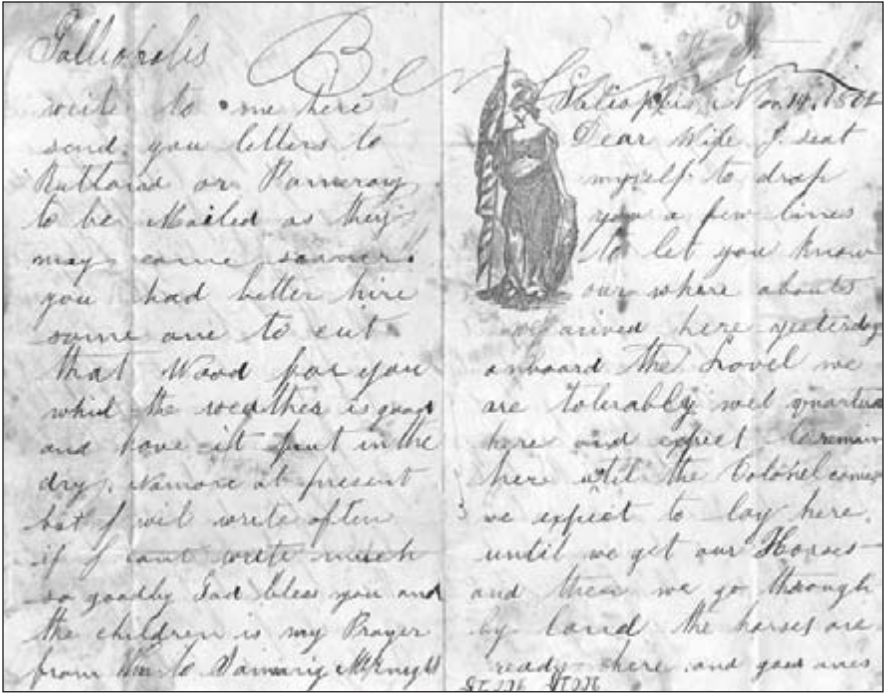 Galliopolis
write to me here
send you letters to
Rutland or Pomeroy
to be Mailed as they
may come sooner
you had better hire
some one to cut
that Wood for you
whil the weather is good
and have it put in the
dry. Namore at present
but I wil write often
if I cant write much
so goodby God bless you and
the children is my Prayer
from Wm to McKnight
Galiopolis Nov 14, 1862
Dear Wife I seat
myself to drop
you a few lines
to let you know
our where abouts
we arived here yesterday
onboard the Lovel we
are tolerably wel quarterd
here and expect to remain
here util the Colonel comes
we expect to lay here
until we get our Horses
and then we go through
by land the horses are
ready here and good ones